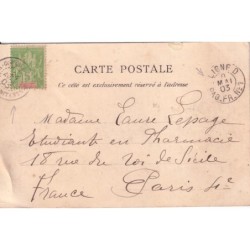 CARTE POSTALE
Ce côté est exclusivement réservé à l'adresse
LIGNE D
MAI
03
Madame Laure Lepage
Etudiante en Pharmacie
18 rue du roi de Sicile
France Paris 4e